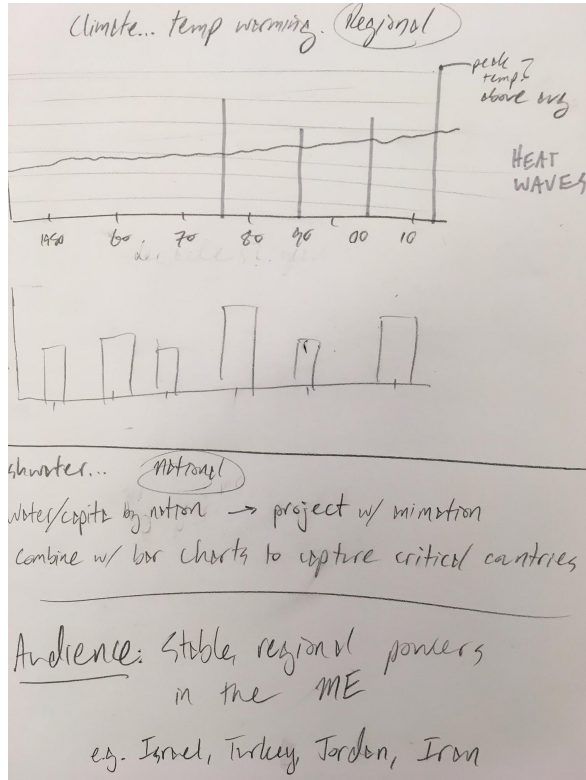 Climate... temp warming. Regional
peak
temp?
above avg
HEAT
WAVES
1950 60 70 80 90 00 10
shwater... National
water/capita by nation → project w/ animation
combine w/ bar charts to capture critical countries
Audience: Stable, regional powers
in the ME
e.g. Israel, Turkey, Jordan, Iran